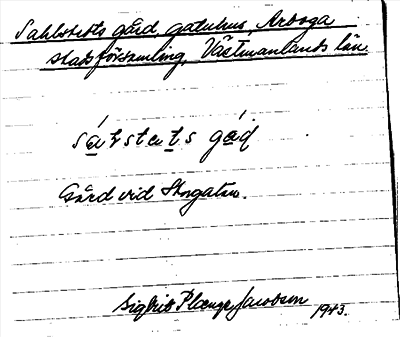 Sahlstedts gård, gatuhus, Arboga
stadsförsamling, Västmanlands län.
Gård vid Storgatan.
Sigfrid Plænge Jacobson 1943.